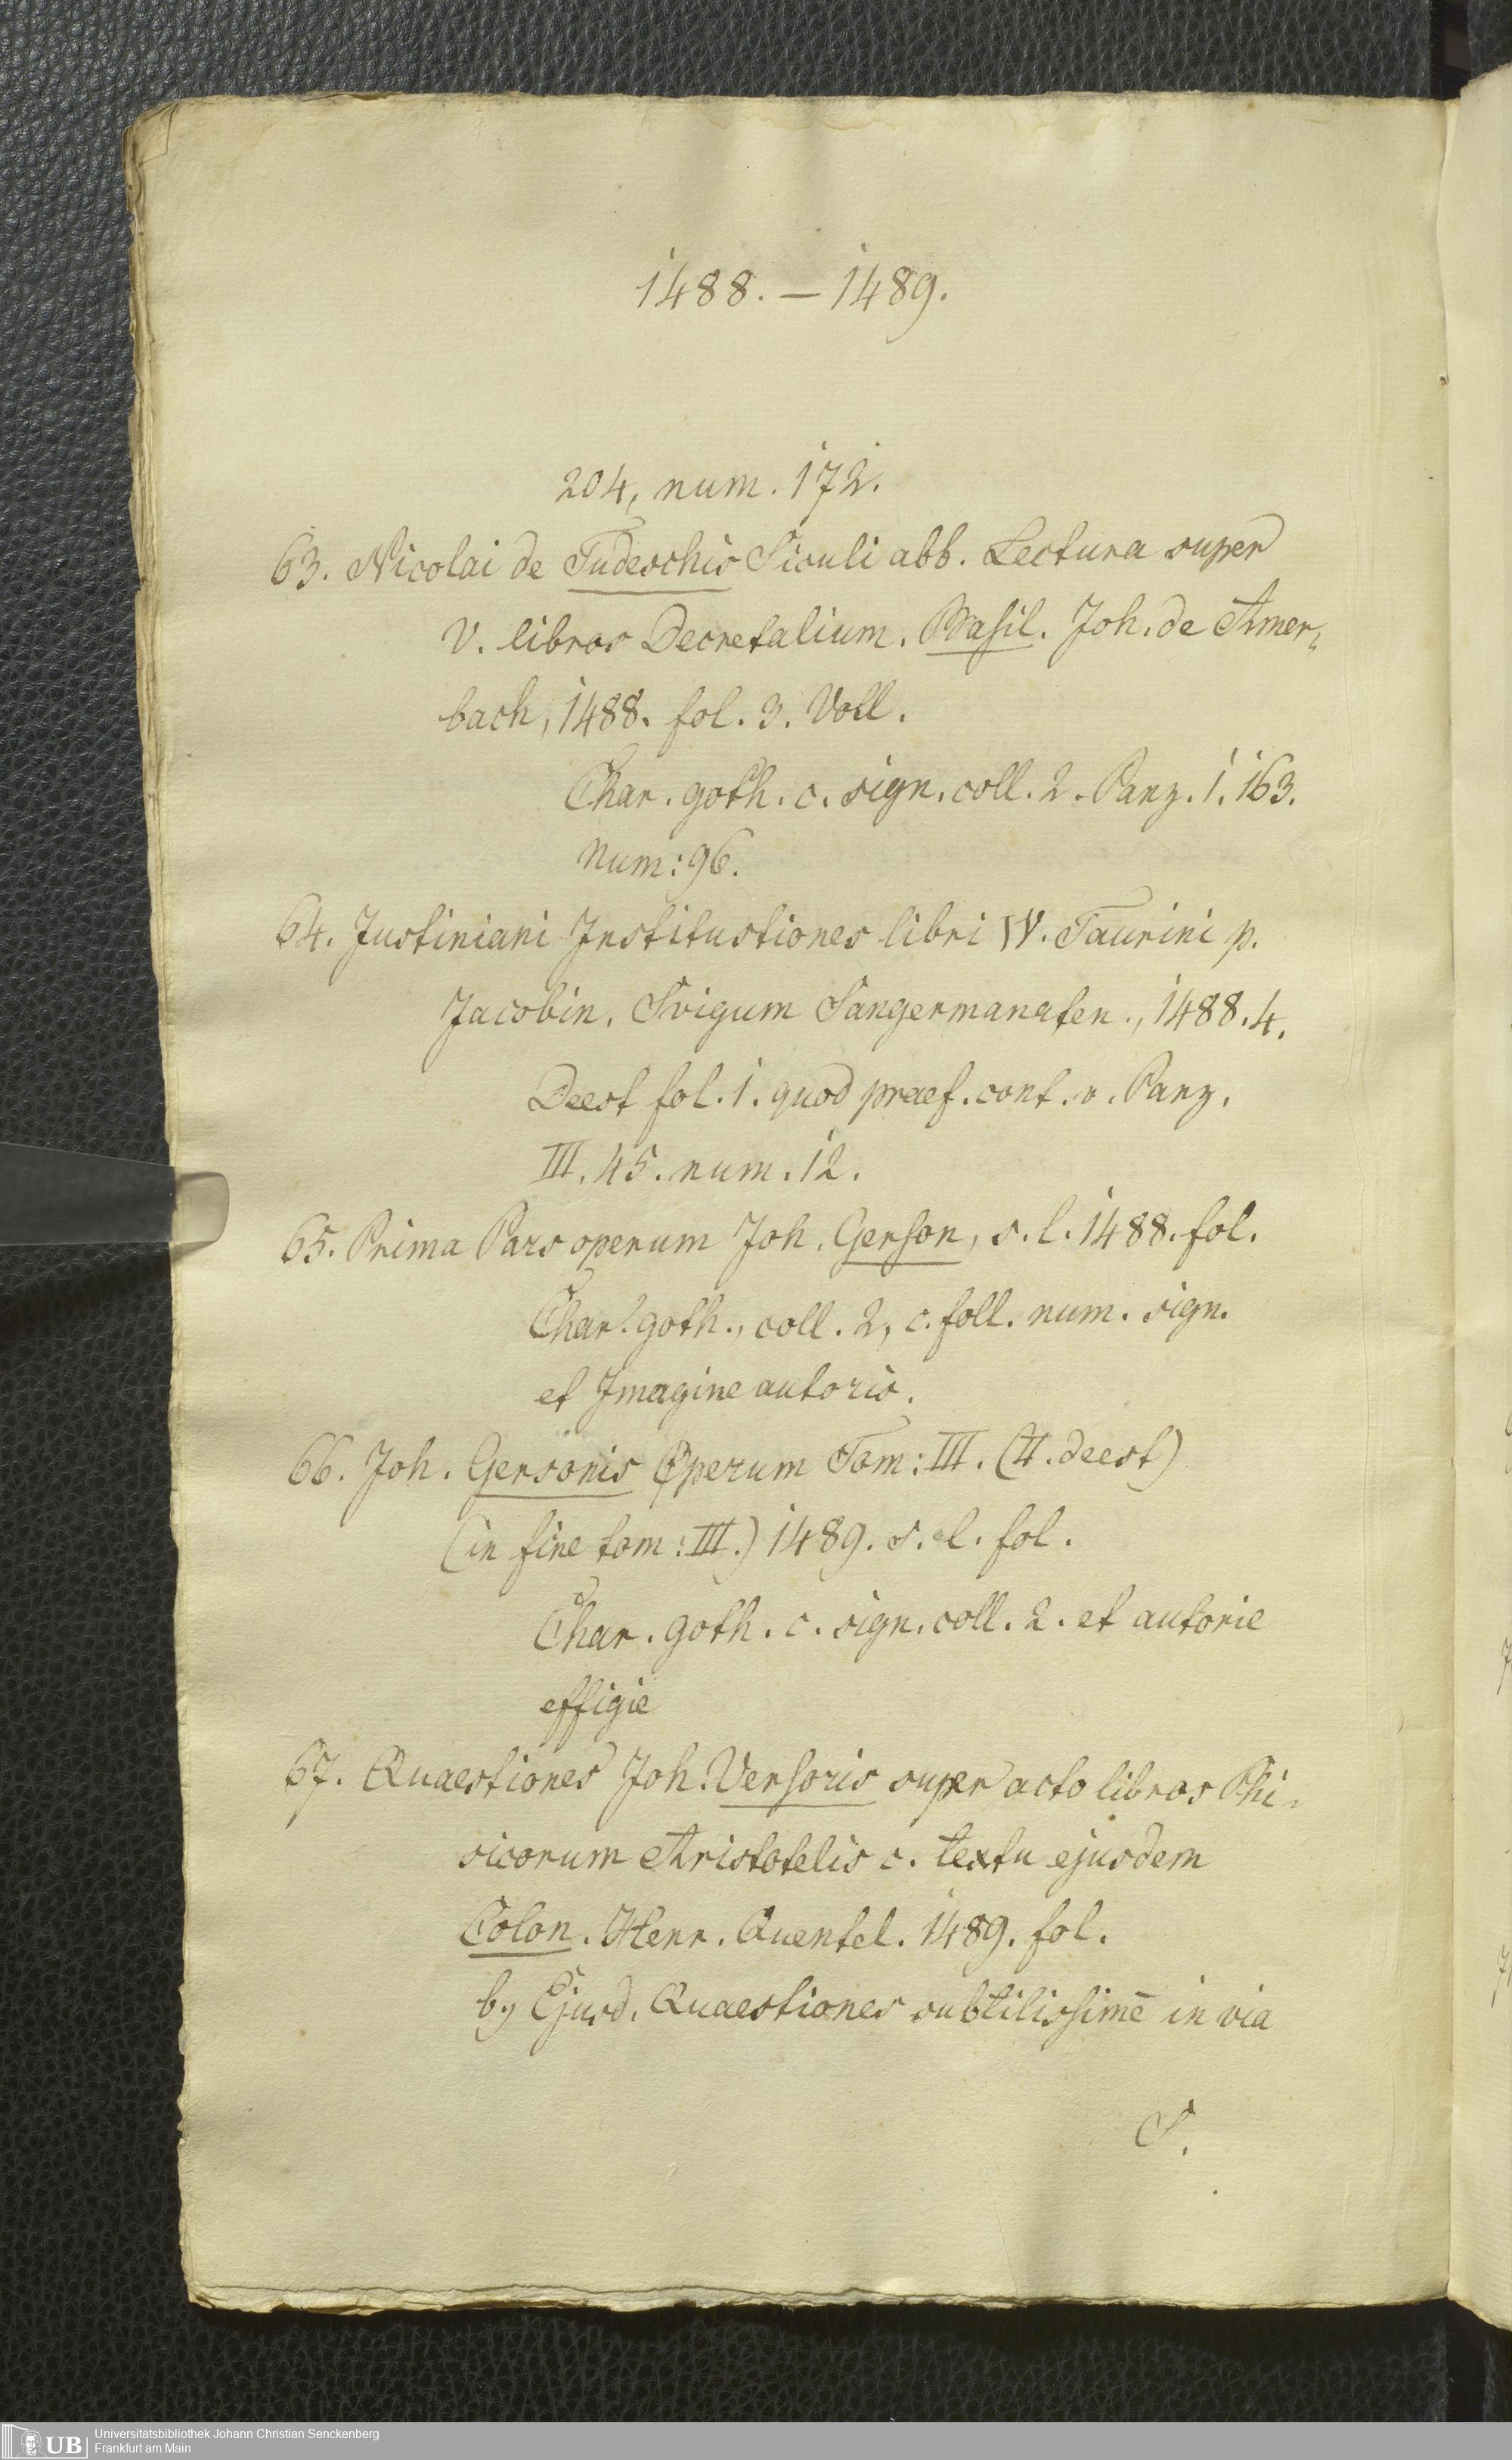 1488. — 1489.
204, num. 172.
63. Nicolai de Tudeschis Siculi abb. Lectura super
V. libros Decretalium. Basil. Joh. de Amer„
bach, 1488. fol. 3. Voll.
Char. goth. c. sign. coll. 2. Panz. 1. 163.
num: 96.
64. Justiniani Institustiones libri IV. Taurini p.
Jacobin. Svigum Sangermanaten., 1488. 4.
Deest fol. 1. quod praef. cont. v. Panz.
III. 45. num. 12.
65. Prima Pars operum Joh. Gerson, s. l. 1488. fol.
Char. goth., coll. 2, c. foll. num. sign.
et Imagine autoris.
66. Joh. Gersonis Operum Tom: III. (II. deest)
(in fine tom: III.) 1489. s. l. fol.
Char. goth. c. sign. coll. 2. et autorie
effigie
67. Quaestiones Joh. Versoris super acto libros Phi-
sicorum Aristotelis c. textu ejusdem
Colon. Henr. Quentel. 1489. fol.
b) Ejusd. Quaestiones subtilissimē in via
S.
UB Universitätsbibliothek Johann Christian Senckenberg
Frankfurt am Main